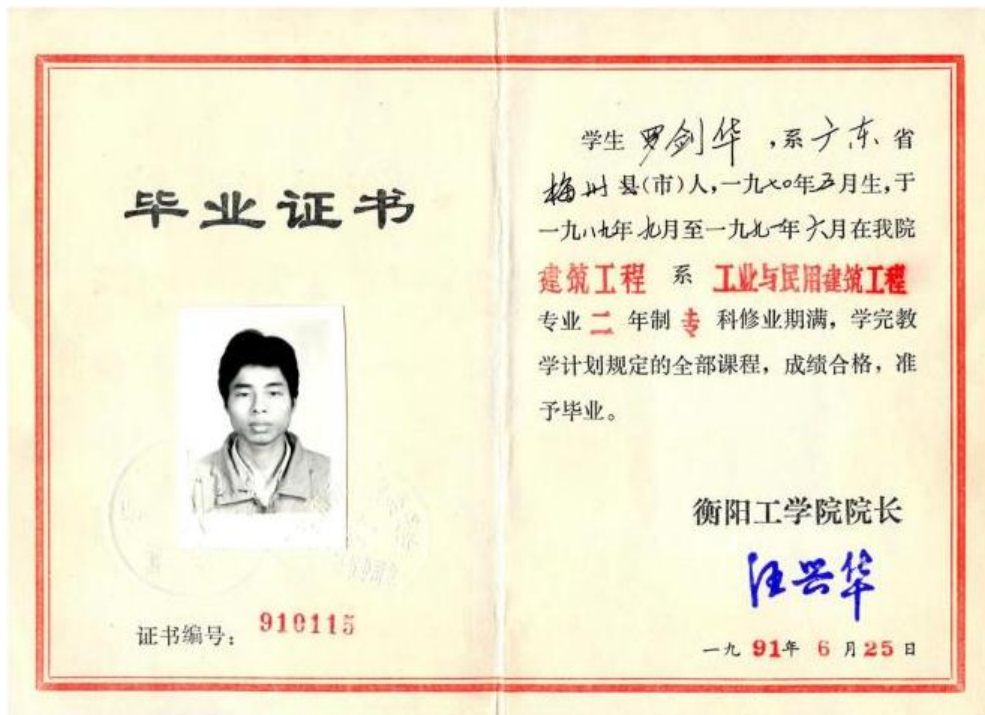 毕业证书
证书编号：910115
学生 罗剑华，系广东省
梅州县(市)人，一九七〇年五月生，于
一九八九年九月至一九九一年六月在我院
建筑工程 系 工业与民用建筑工程
专业 二 年制 专 科修业期满，学完教
学计划规定的全部课程，成绩合格，准
予毕业。
衡阳工学院院长
汪兴华
一九91年6月25日